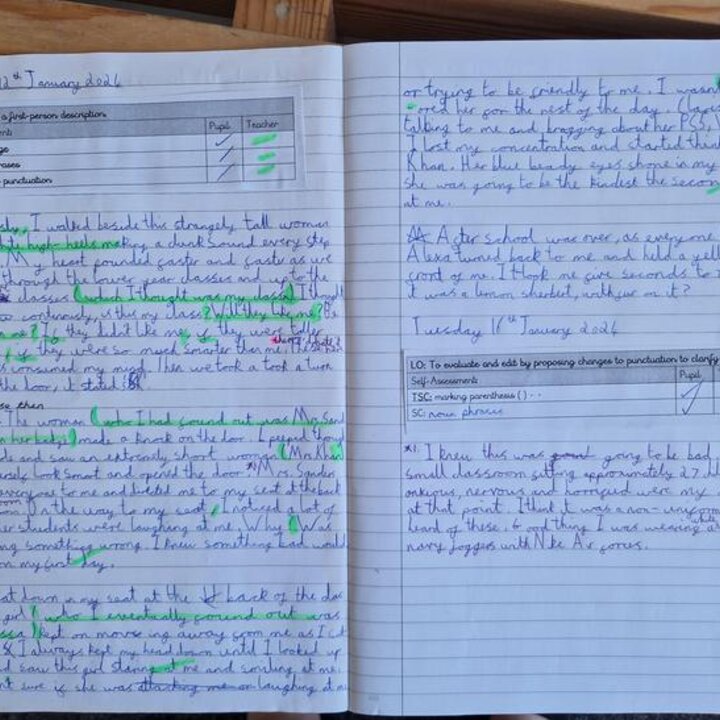 12th January 2024
a first-person description
Pupil Teacher
punctuation
I walked beside this strangely tall woman
high-heels making a clunk sound every step
My heart pounded faster and faster as we
through the lower year classes and up to the
classes (which I thought was my class) I thought
continously, is this my class? Will they like me?
me? If they didn't like me, if they were taller
if they were so much smarter than me. These
consumed my mind. Then we took a took a turn
the door, it stated
The woman (who I had found out was Mrs. Sand
made a knock on the door. I peeped though
and saw an extremely short woman (Mrs. Khan)
look smart and opened the door. *1 Mrs. Sanders
everyone to me and directed me to my seat at the back
On the way to my seat, I noticed a lot of
students were laughing at me. Why? Was
something wrong. I knew something bad would
on my first day.
sat down in my seat at the back of the clas
girl (who I eventually found out was
kept on moveing away from me as I
I always kept my head down until I looked up
saw this girl staring at me and smiling at me.
sure if she was attacking me or laughing at m
or trying to be friendly to me. I wasn
ored her for the rest of the day.
talking to me and bragging about her PS5,
I lost my concentration and started
Khan. Her blue beady eyes shone in my
she was going to be the kindest the secon
at me.
After school was over, as everyone
Alexa turned back to me and held a yell
front of me. I took me five seconds to
it was a lemon sherbet, with fur on it?
Tuesday 16th January 2024
LO: To evaluate and edit by proposing changes to punctuation to clarify
Self-Assessment: Pupil
TSC: marking parenthesis ( ) - -
SC: noun phrases
*1. I knew this was going to be bad.
small classroom sitting approximately 27
anxious, nervous and horrified were my
at that point. I think it was a non-unifor
heard of these. Good thing I was wearing a
white
navy joggers with Nike Air forces.